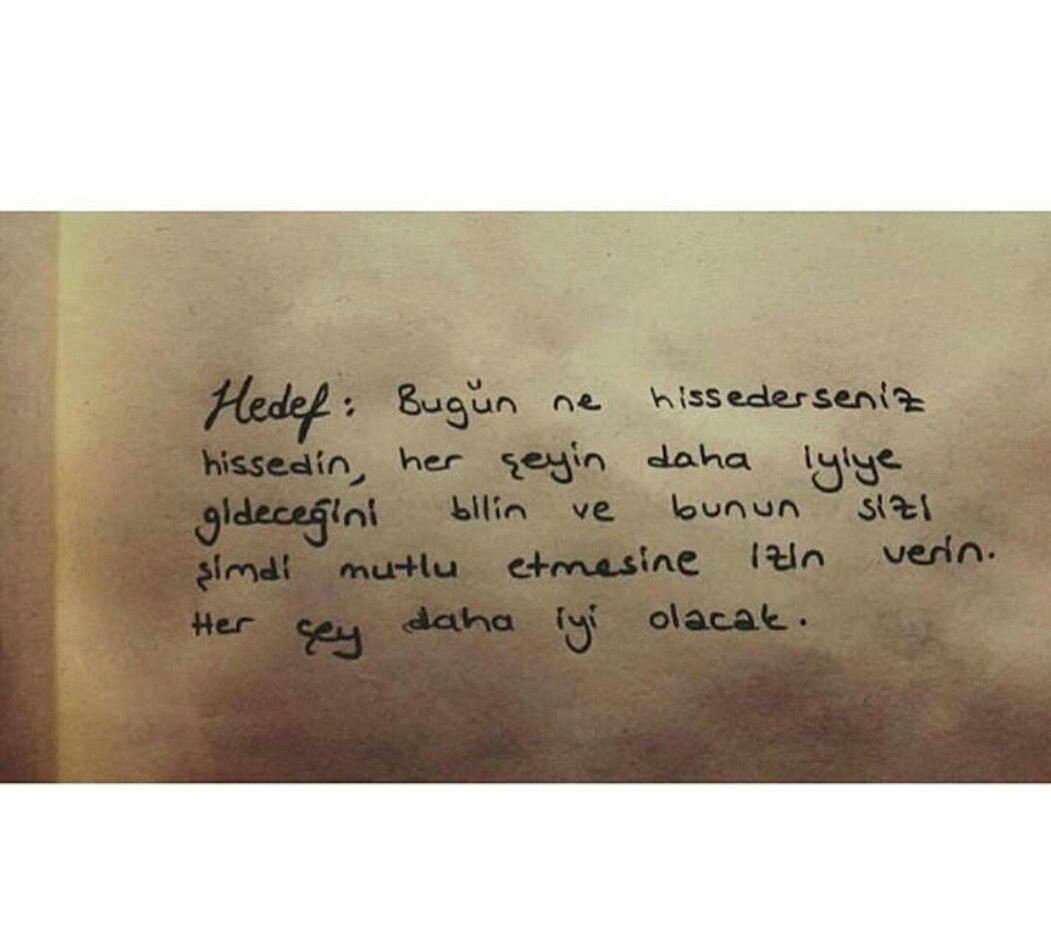 Hedef: Bugün ne hissederseniz
hissedin, her şeyin daha iyiye
gideceğini bilin ve bunun sizi
şimdi mutlu etmesine izin verin.
Her şey daha iyi olacak.